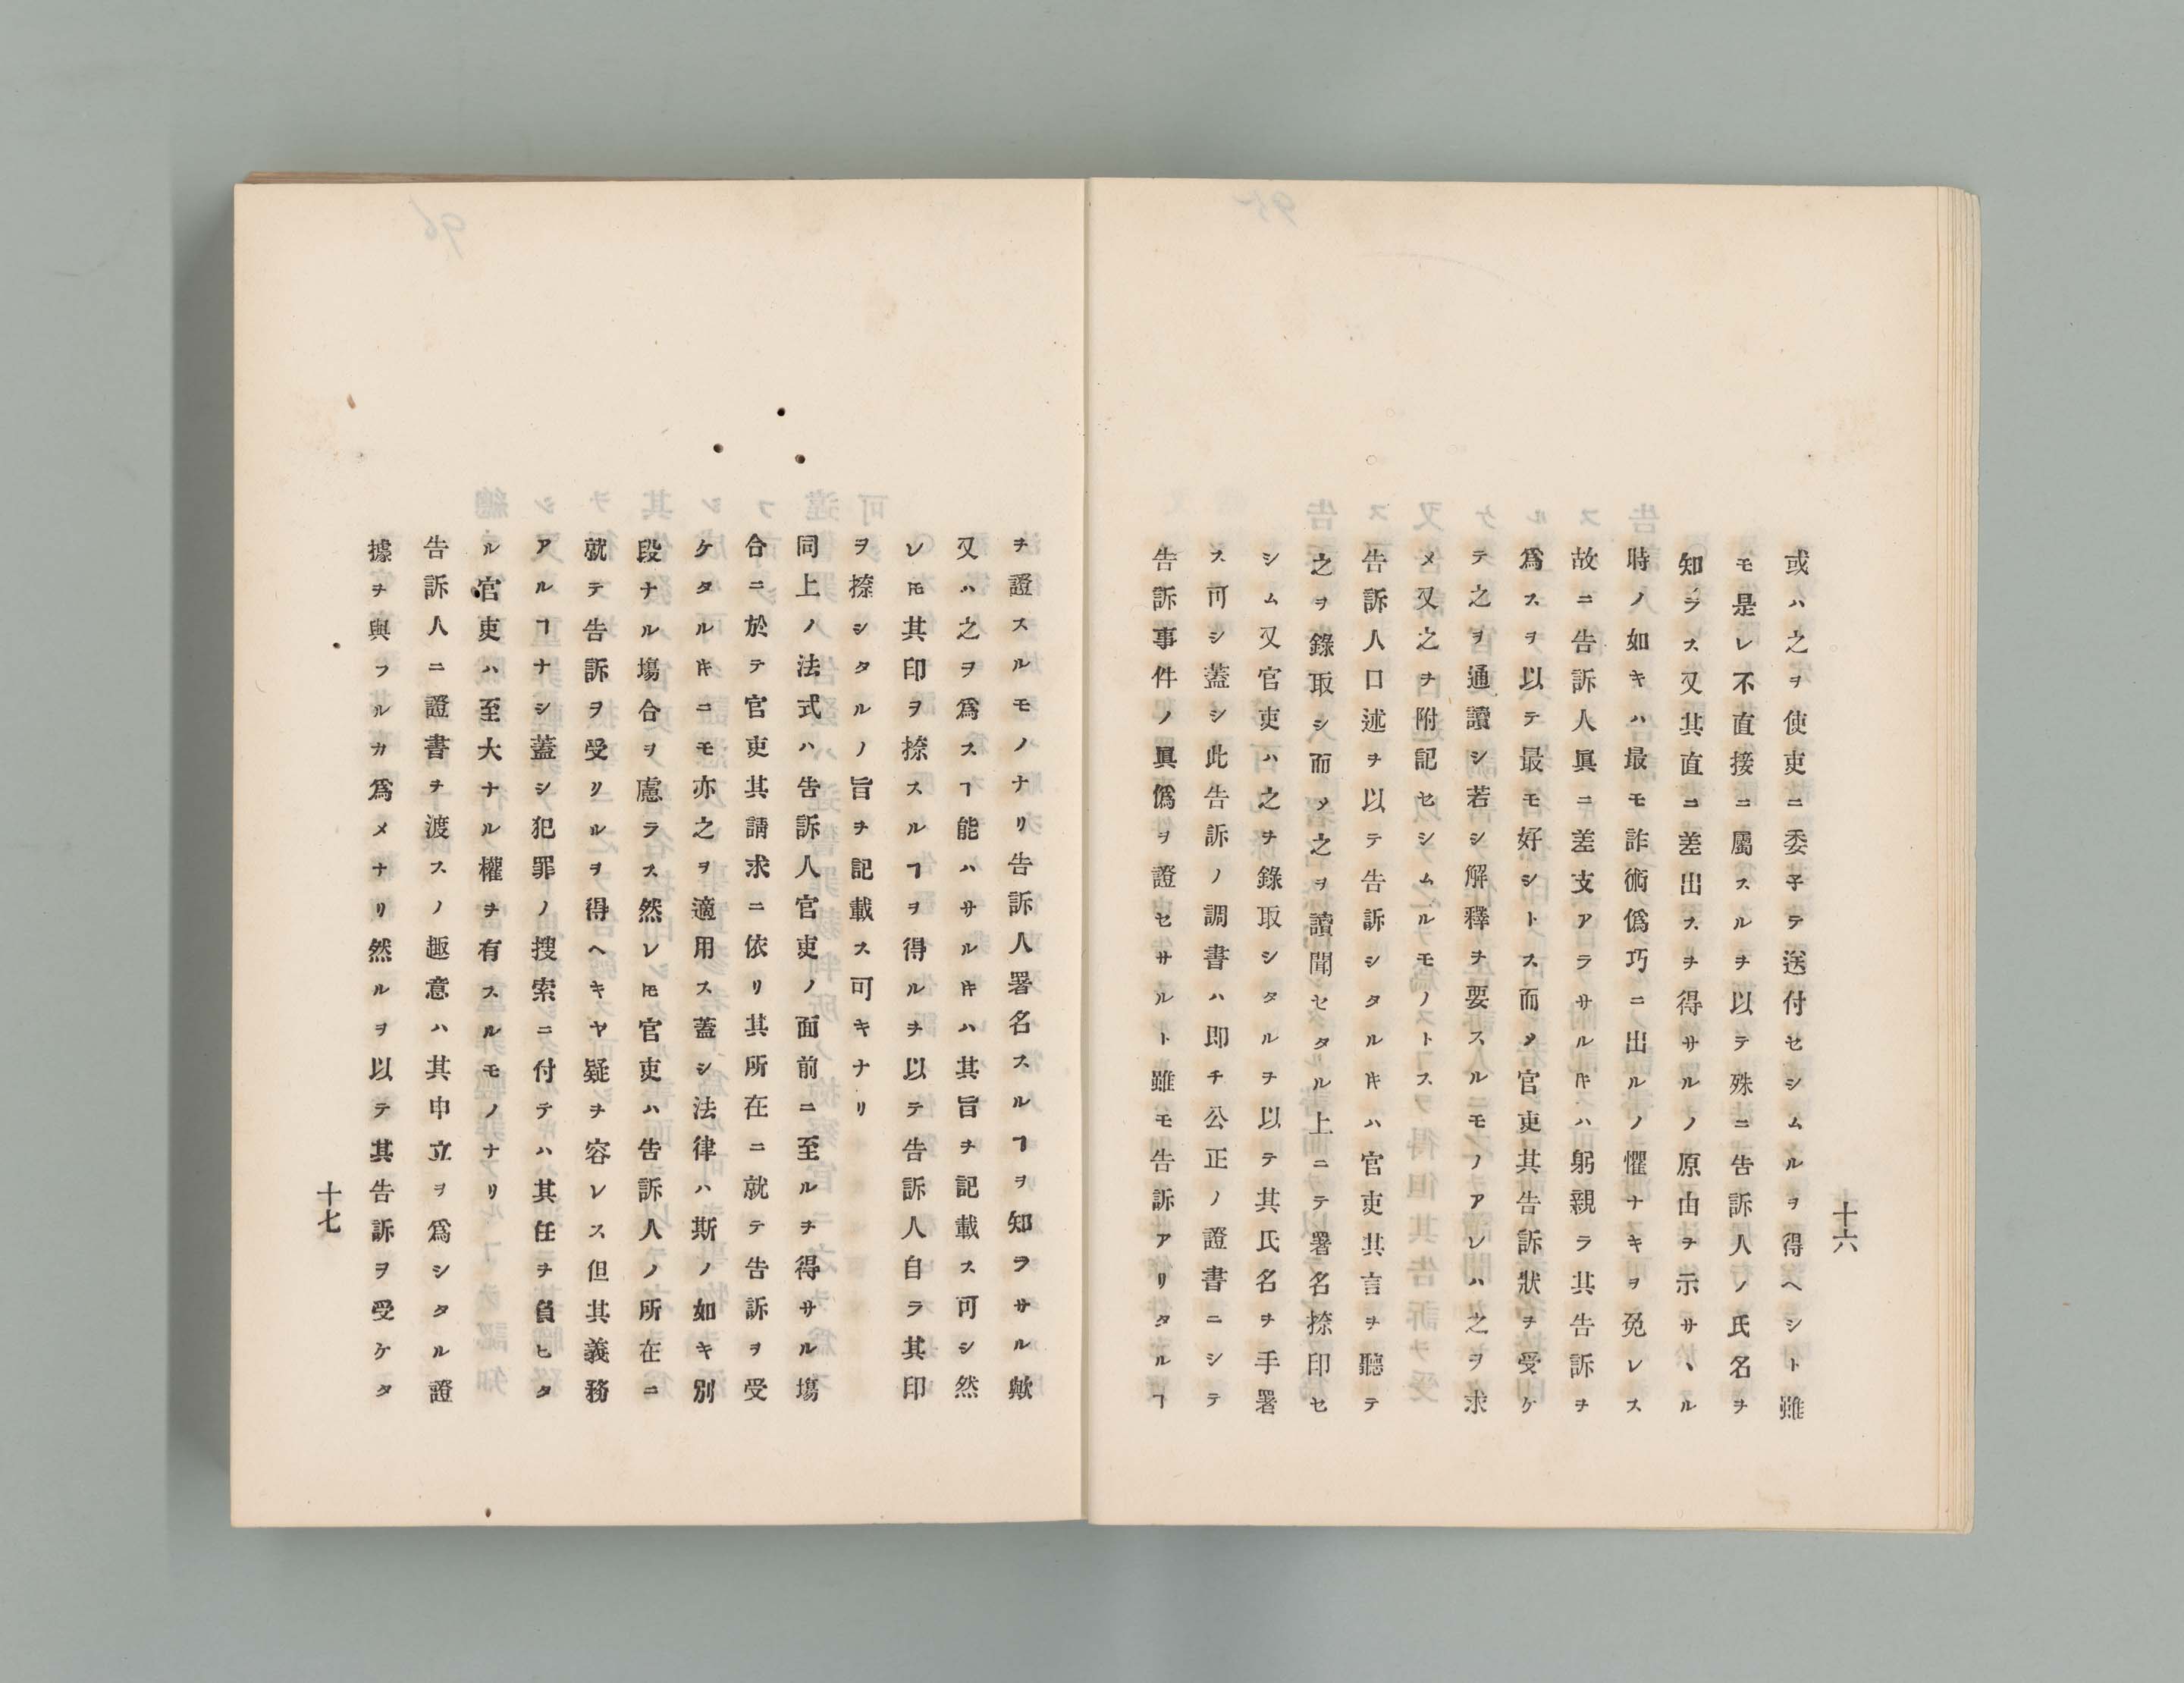 十六
或ハ之ヲ使吏ニ委子テ送付セシムルヲ得ヘシト雖
モ是レ不直接ニ屬スルヲ以テ殊ニ告訴人ノ氏名ヲ
知ラス又其直ニ差出スヲ得サルノ原由ヲ示サヽル
時ノ如キハ最モ詐術僞巧ニ出ルノ懼ナキヲ免レス
故ニ告訴人眞ニ差支アラサルキハ躬親ラ其告訴ヲ
爲スヲ以テ最モ好シトス而〆官吏其告訴狀ヲ受ケ
テ之ヲ通讀シ若シ解釋ヲ要スルモノアレハ之ヲ求
メ又之ヲ附記セシムルモノトス
告訴人口述ヲ以テ告訴シタルキハ官吏其言ヲ聽テ
之ヲ錄取シ而〆之ヲ讀聞セタル上ニテ署名捺印セ
シム又官吏ハ之ヲ錄取シタルヲ以テ其氏名ヲ手署
ス可シ蓋シ此告訴ノ調書ハ即チ公正ノ證書ニシテ
告訴事件ノ眞僞ヲ證セサルト雖モ告訴アリタルヿ
ヲ證スルモノナリ告訴人署名スルヿヲ知ラサル歟
又ハ之ヲ爲スヿ能ハサルキハ其旨ヲ記載ス可シ然
レモ其印ヲ捺スルヿヲ得ルヲ以テ告訴人自ラ其印
ヲ捺シタルノ旨ヲ記載ス可キナリ
同上ノ法式ハ告訴人官吏ノ面前ニ至ルヲ得サル塲
合ニ於テ官吏其請求ニ依リ其所在ニ就テ告訴ヲ受
ケタルキニモ亦之ヲ適用ス蓋シ法律ハ斯ノ如キ別
段ナル塲合ヲ慮ラス然レモ官吏ハ告訴人ノ所在ニ
就テ告訴ヲ受リルヲ得ヘキヤ疑ヲ容レス但其義務
アルヿナシ蓋シ犯罪ノ搜索ニ付テハ其任ヲ負ヒタ
ル官吏ハ至大ナル權ヲ有スルモノナリ
告訴人ニ證書ヲ渡スノ趣意ハ其申立ヲ爲シタル證
據ヲ與フルカ爲メナリ然ルヲ以テ其告訴ヲ受ケタ
十七